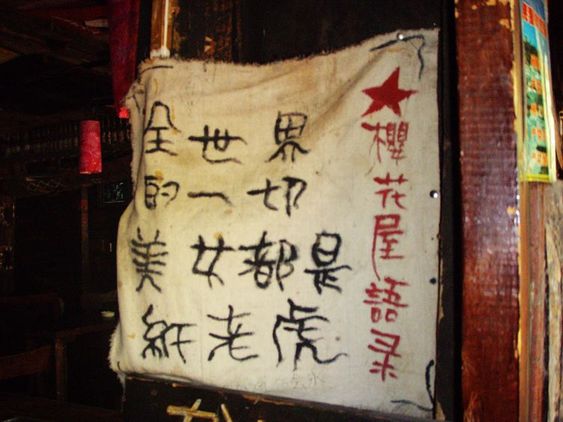 全世界
的一切
美女都是
紙老虎
★櫻花屋語录